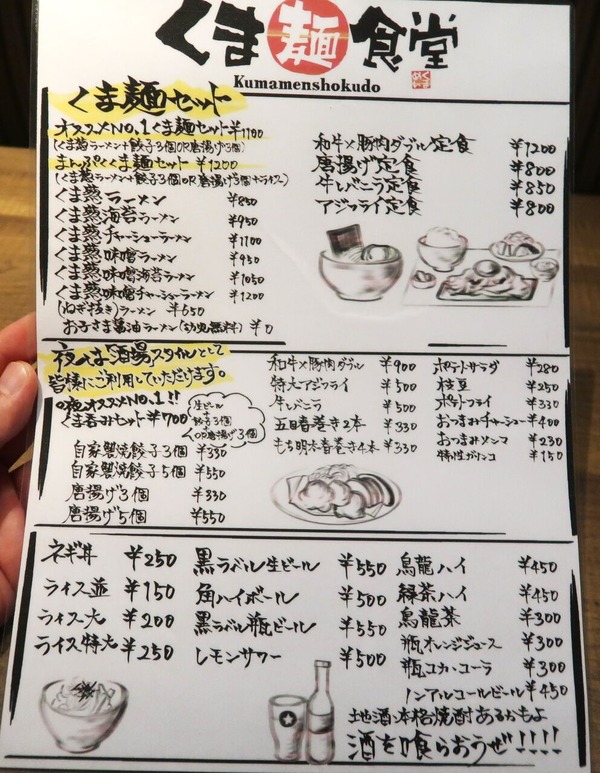 くま麺食堂
Kumamenshokudo
くま麺セット
オススメNO.1くま麺セット¥1100
(くま葱ラーメン+餃子3個OR唐揚げ3個)
まんぷくくま麺セット ¥1200
(くま葱ラーメン+餃子3個OR唐揚げ3個+ライス)
くま葱ラーメン ¥850
くま葱海苔ラーメン ¥950
くま葱チャーシューラーメン ¥1100
くま葱味噌ラーメン ¥950
くま葱味噌海苔ラーメン ¥1050
くま葱味噌チャーシューラーメン ¥1200
(ねぎ抜き)ラーメン ¥650
お子さま醤油ラーメン(幼児無料) ¥0
和牛×豚肉ダブル定食 ¥1200
唐揚げ定食 ¥800
牛しびニラ定食 ¥850
アジフライ定食 ¥800
夜くま酒場スタイルとして
皆様にご利用していただけます。
夜オススメNO.1!!
くま呑みセット¥700
生ビール
餃子3個
OR唐揚げ3個
自家製焼餃子3個 ¥330
自家製焼餃子5個 ¥550
唐揚げ3個 ¥330
唐揚げ5個 ¥550
和牛×豚肉ダブル ¥900
特大アジフライ ¥500
牛しびニラ ¥500
五目春巻き2本 ¥330
もち明太春巻き4本 ¥330
ポテトサラダ ¥280
枝豆 ¥250
ポテトフライ ¥330
おつまみチャーシュー ¥400
おつまみメンマ ¥230
特性ガリンコ ¥150
ネギ丼 ¥250
ライス並 ¥150
ライス大 ¥200
ライス特大 ¥250
黒ラベル生ビール ¥550
角ハイボール ¥500
黒ラベル瓶ビール ¥550
レモンサワー ¥500
烏龍ハイ ¥450
緑茶ハイ ¥450
烏龍茶 ¥300
瓶オレンジジュース ¥300
瓶コカ・コーラ ¥300
ノンアルコールビール ¥450
地酒・本格焼酎あるかもよ
酒を喰らおうぜ!!!!!